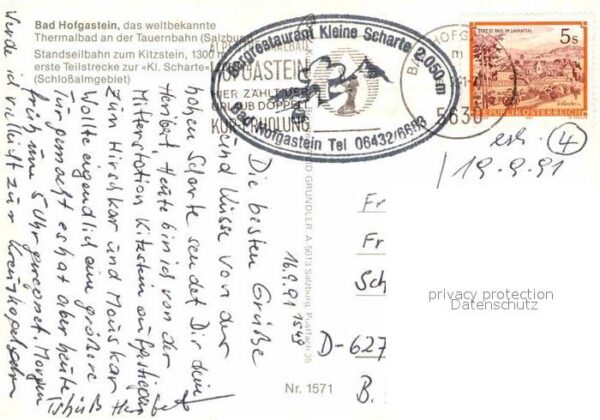 Bad Hofgastein, das weltbekannte
Thermalbad an der Tauernbahn (Salzburg
Standseilbahn zum Kitzstein, 1300 m
erste Teilstrecke zur »Kl. Scharte«
(Schloßalmgebiet)
Bergrestaurant Kleine Scharte 2.050 m
Bad Hofgastein Tel 06432/66
HOFGASTEIN
HIER ZÄHLT DER
URLAUB DOPPELT
KUR-ERHOLUNG
5630
STIFT ST. PAUL IM LAVANTTAL
5 S
REPUBLIK ÖSTERREICH
erh. 4
19.9.91
16.9.91 1548
Die besten Grüße
und Küsse von der
hohen Scharte sendet Dir dein
Heribert Heute bin ich von der
Mittenstation Kitzstein aufgestiegen
zum Hirschkar und Mauskar
Wollte eigendlich eine größere
Tur gemacht es hat aber heute
früh um 5 Uhr geregnet. Morgen
werde ich vielleicht zur Kreuzkogel
Tshüß
GRUNDLER A 5013 Salzburg, Postfach 35
Nr. 1571
Fr
Fr
Sch
D-627
B.
privacy protection
Datenschutz